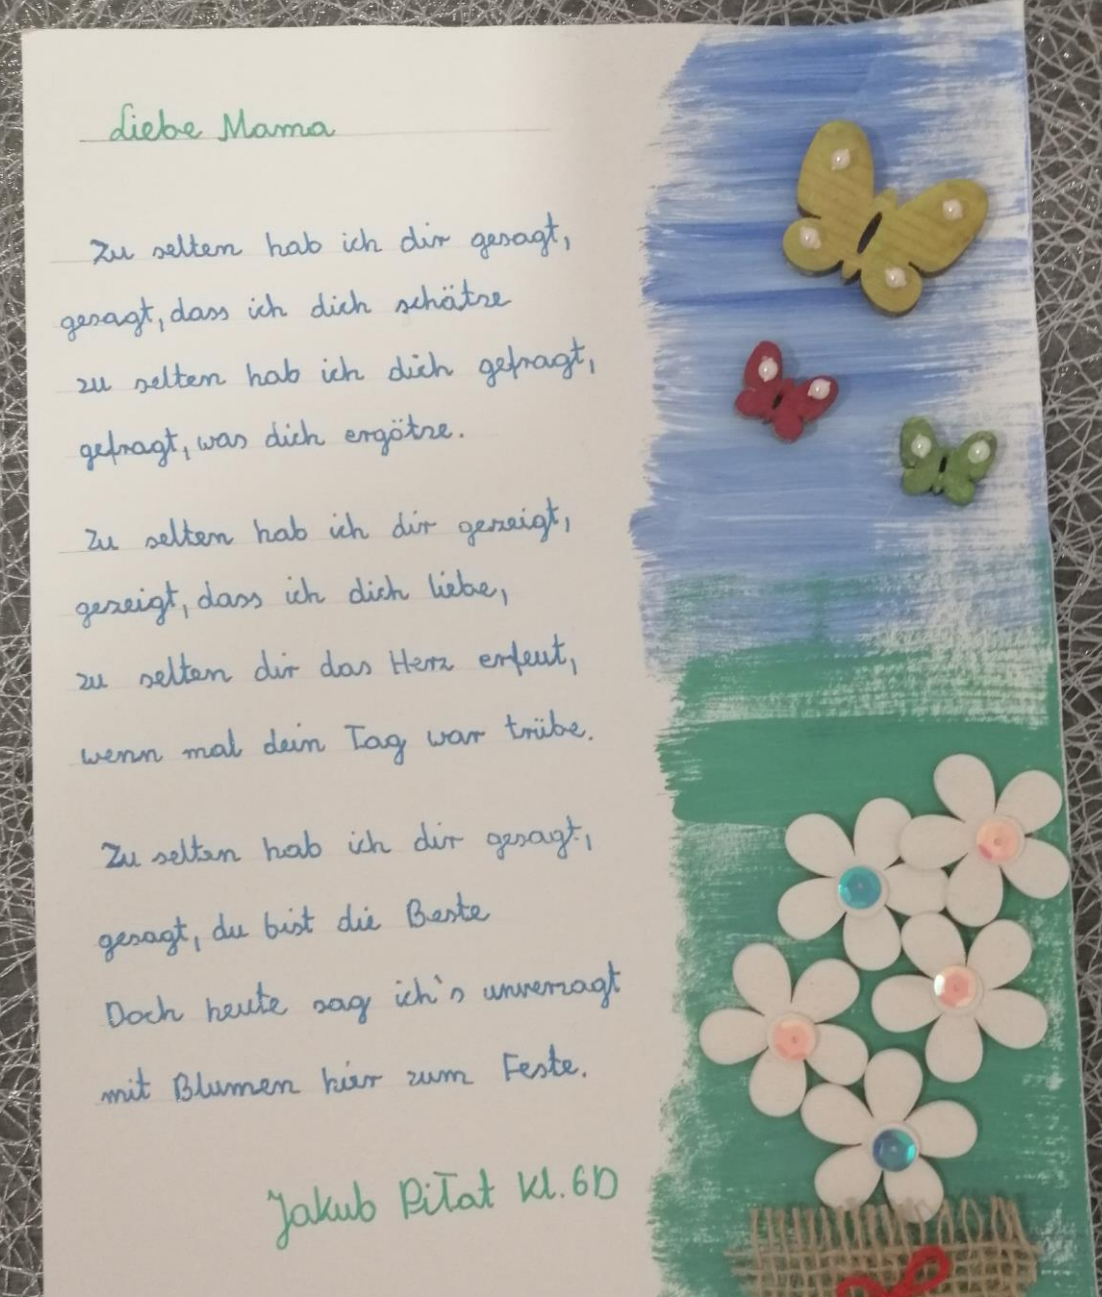 Liebe Mama
Zu selten hab ich dir gesagt,
gesagt, dass ich dich schätze
zu selten hab ich dich gefragt,
gefragt, was dich ergötze.
Zu selten hab ich dir gezeigt,
gezeigt, dass ich dich liebe,
zu selten dir das Herz erfeut,
wenn mal dein Tag war trübe.
Zu selten hab ich dir gesagt,
gesagt, du bist die Beste
Doch heute sag ich's unverzagt
mit Blumen hier zum Feste.
Jakub Piłat Kl. 6D